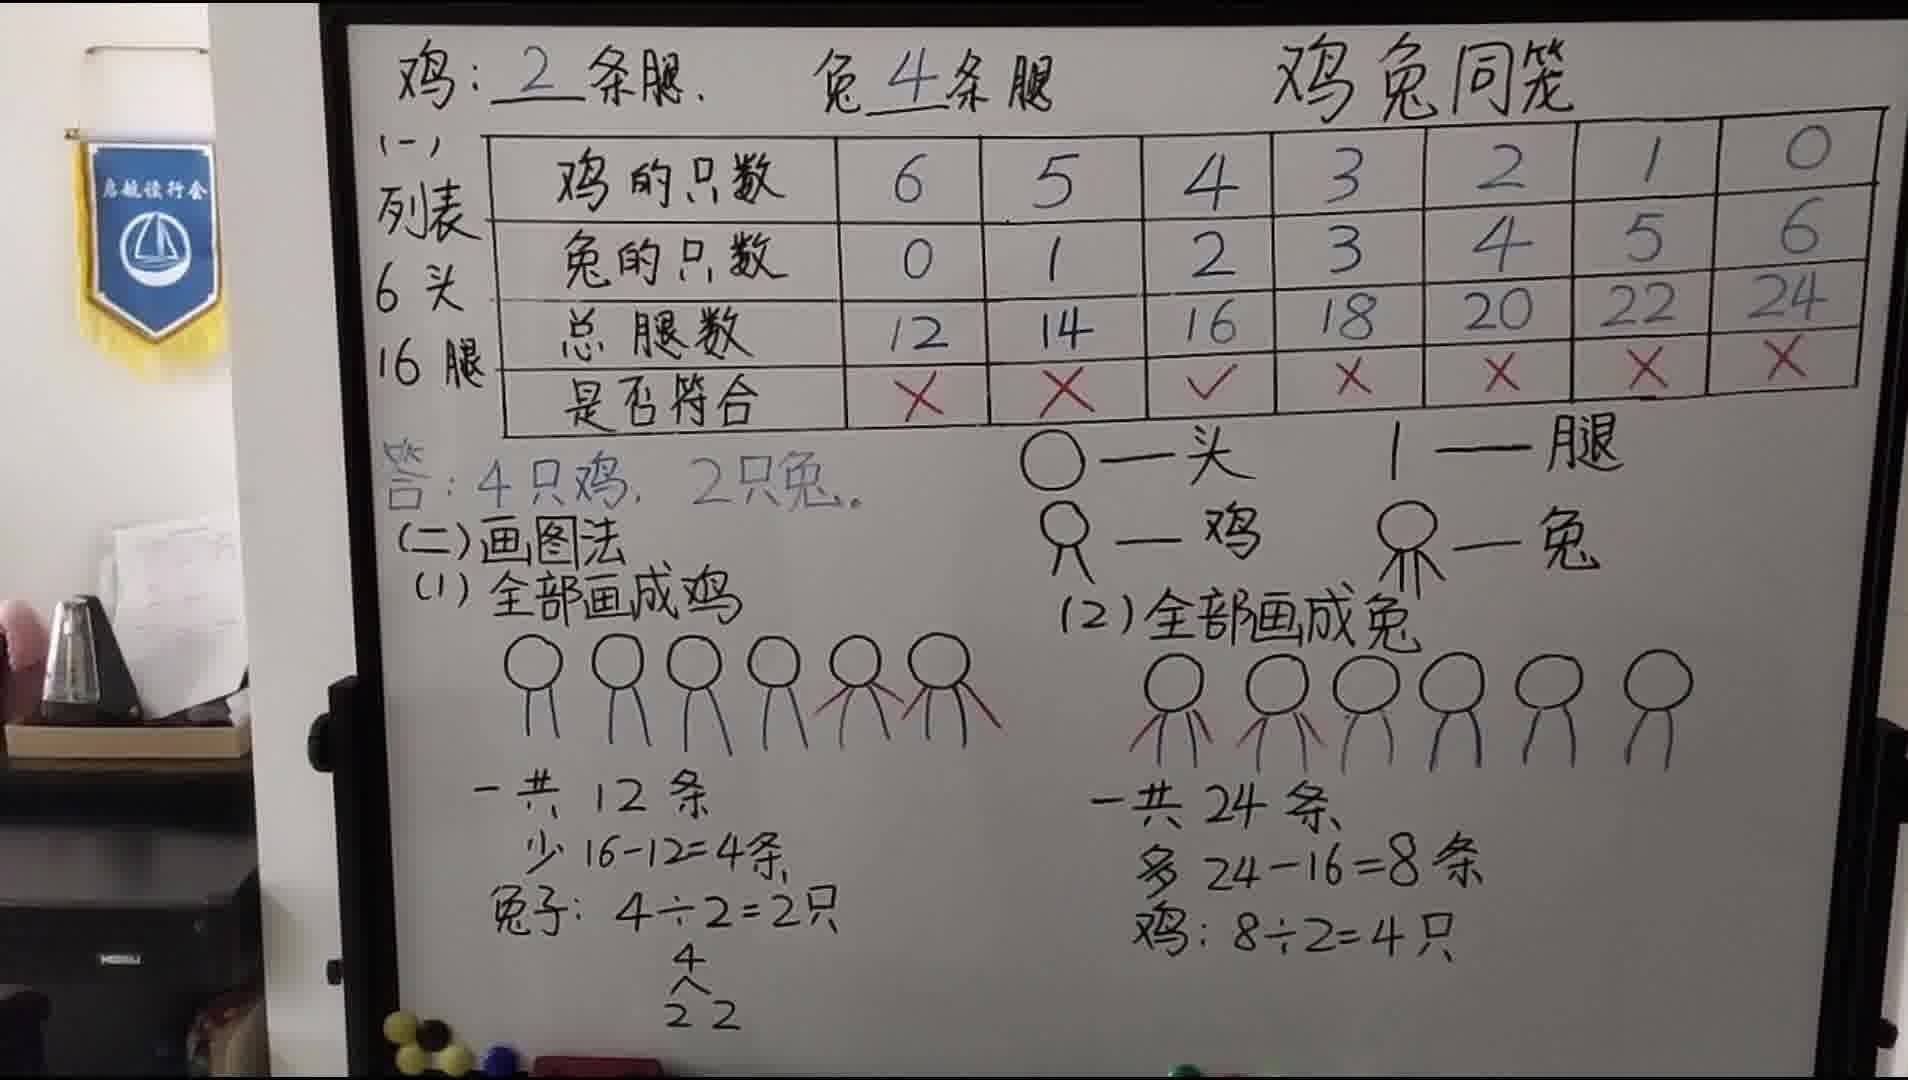 鸡：2条腿. 兔4条腿 鸡兔同笼
(一)
列表
6头
16腿
鸡的只数 6 5 4 3 2 1 0
兔的只数 0 1 2 3 4 5 6
总腿数 12 14 16 18 20 22 24
是否符合 × × ✓ × × × ×
答：4只鸡，2只兔。
○—头 1—腿
—鸡 —兔
(二)画图法
(1)全部画成鸡
一共 12 条
少 16-12=4条
兔子：4÷2=2只
4
2 2
(2)全部画成兔
一共 24 条
多 24-16=8条
鸡：8÷2=4只
启航读行会